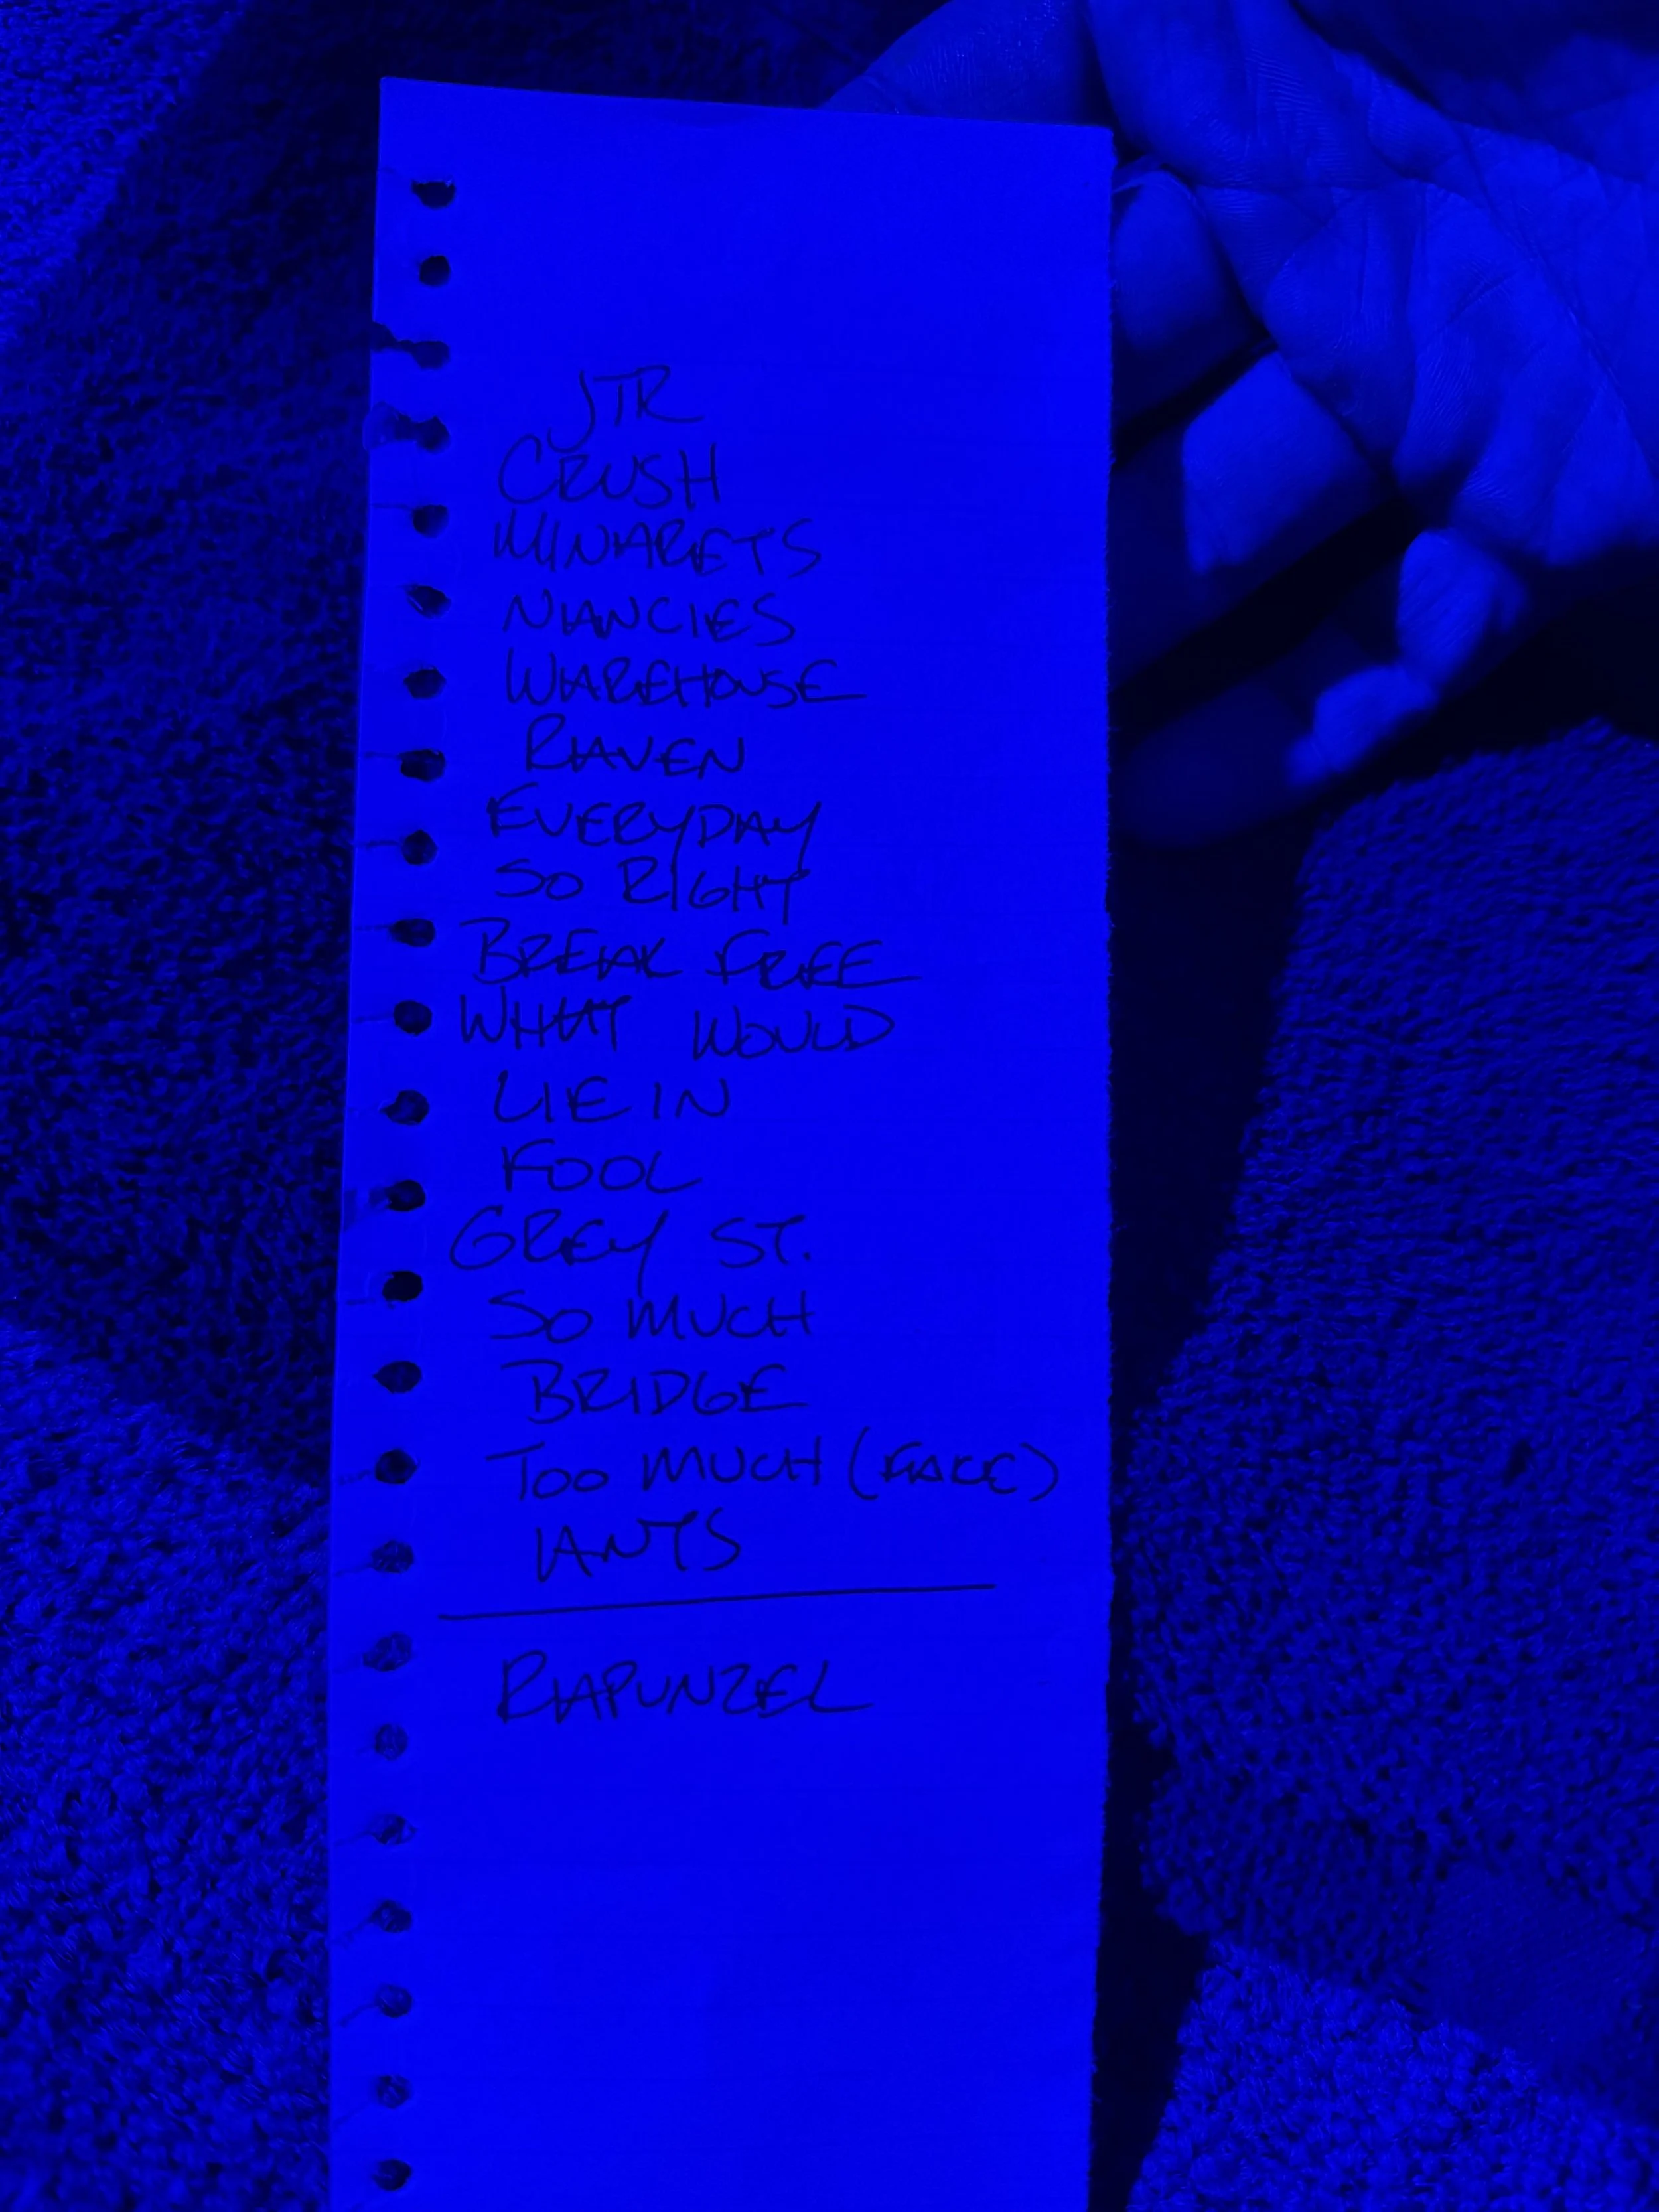 JTR
CRUSH
MINARETS
NANCIES
WAREHOUSE
RAVEN
EVERYDAY
SO RIGHT
BREAK FREE
WHAT WOULD
LIE IN
FOOL
GREY ST.
SO MUCH
BRIDGE
TOO MUCH (FAKE)
ANTS
RAPUNZEL